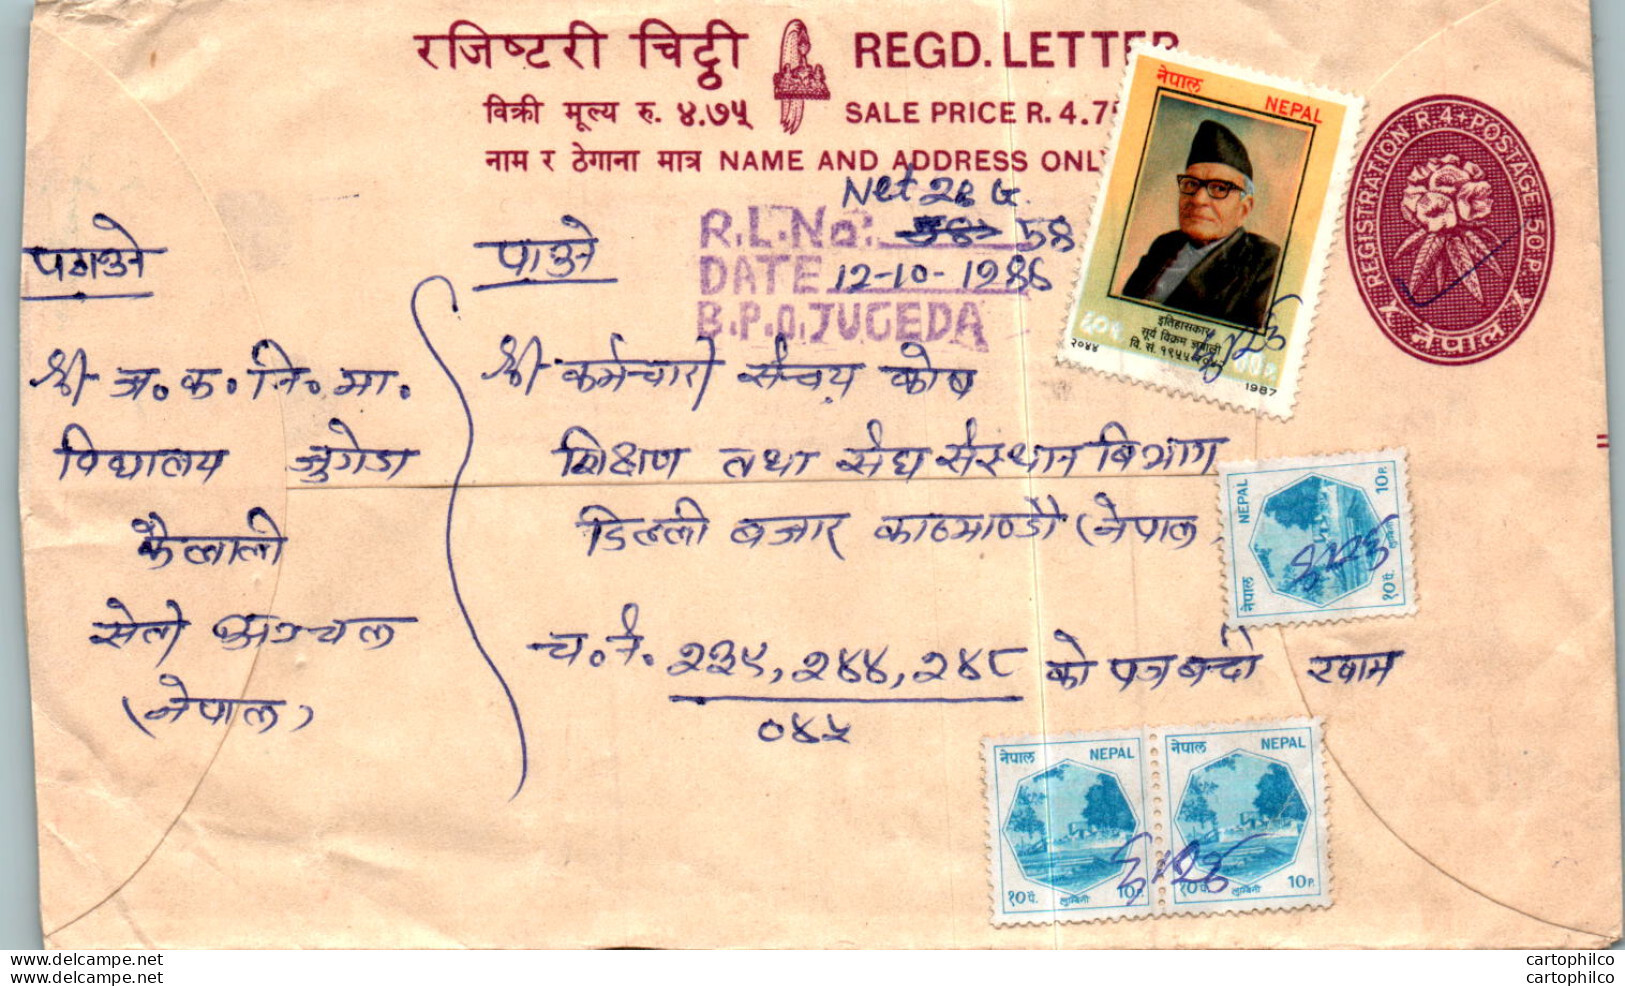 रजिष्टरी चिट्ठी REGD. LETTER
विक्री मूल्य रु. ४.७५ SALE PRICE R. 4.75
नाम र ठेगाना मात्र NAME AND ADDRESS ONLY
Net 28 G.
R.L.No: 58
DATE 12-10-1988
B.P.O. JUGEDA
REGISTRATION R.4. POSTAGE 50 P.
नेपाल
नेपाल
NEPAL
इतिहासकार
सूर्य विक्रम ज्ञवाली
वि. सं. १९५५-२०४२
२०४४
1987
पठाउने
श्री अ. क. नि. मा.
विद्यालय जुगेडा
कैलाली
सेती अञ्चल
(नेपाल)
पाउने
श्री कर्मचारी संचय कोष
शिक्षण तथा संघ संस्थान बिभाग
डिल्ली बजार काठमाण्डौ (नेपाल
च. नं. २३९, २४४, २४८ को पत्र बन्दी खाम
०४५
NEPAL
10 P.
नेपाल
१० पै.
लुम्बिनी
नेपाल NEPAL
१० पै. लुम्बिनी 10 P.
नेपाल NEPAL
१० पै. लुम्बिनी 10 P.
www.delcampe.net
www.delcampe.net
cartophilco
cartophilco